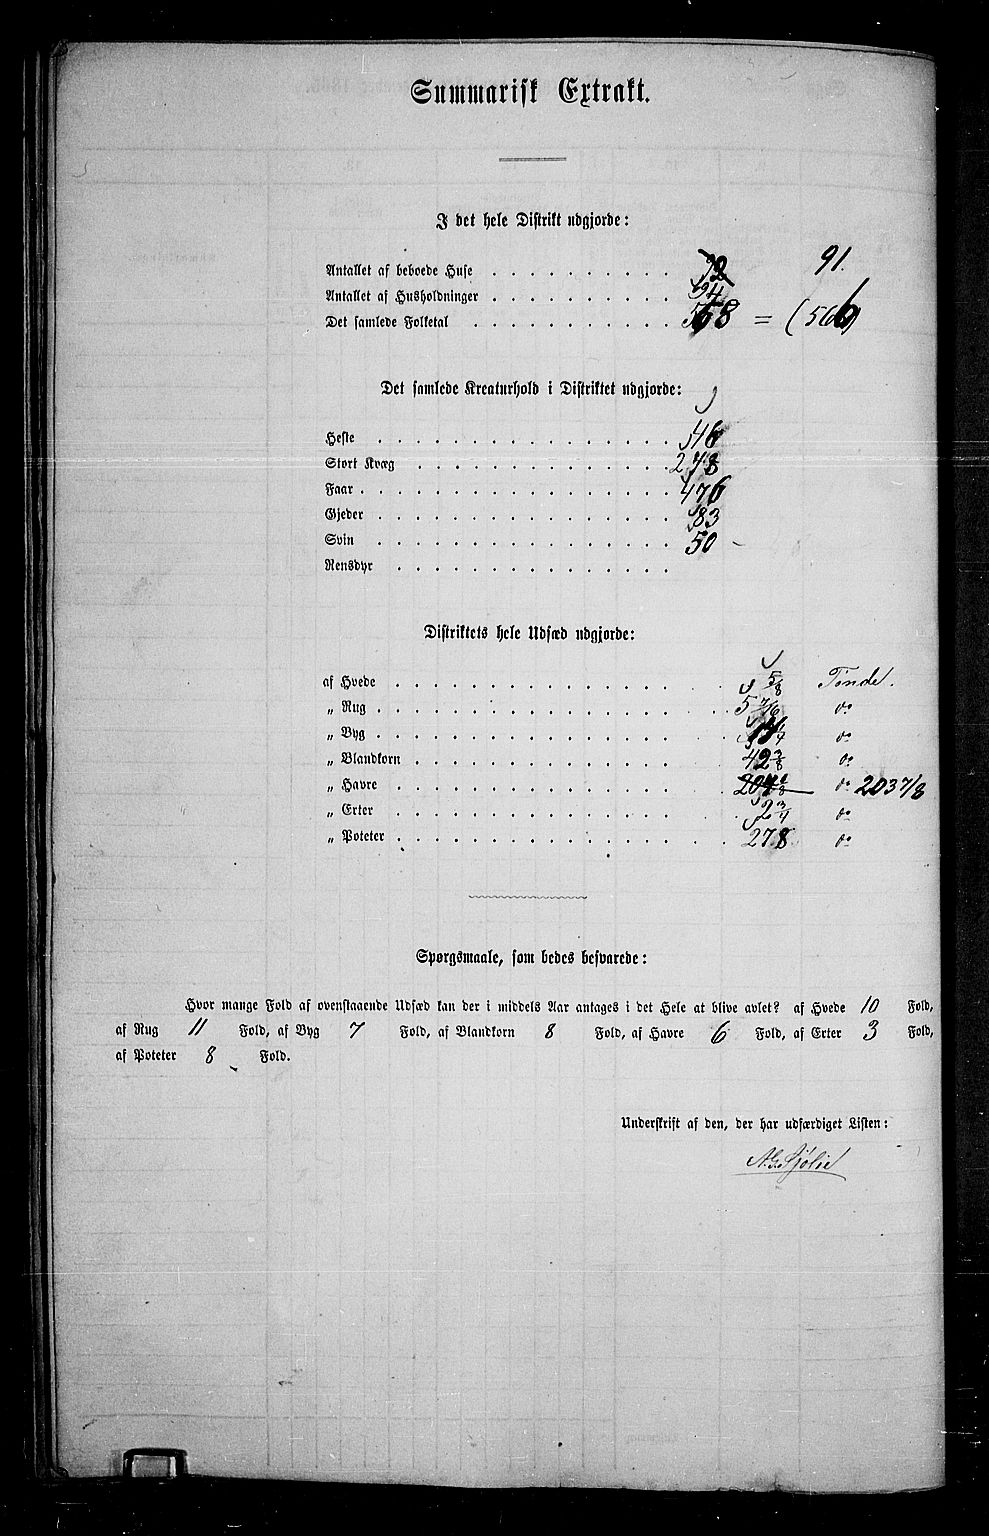 Summarisk Extrakt.
I det hele Distrikt udgjorde:
Antallet af beboede Huse 92 91.
Antallet af Husholdninger 94
Det samlede Folketal 568 = (566)
Det samlede Kreaturhold i Distriktet udgjorde:
Heste 46
Stort Kvæg 248
Faar 476
Gjeder 83
Svin 50 -
Rensdyr
Distriktets hele Udsæd udgjorde:
af Hvede 5/8 Tønde.
„ Rug 5 do
„ Byg do
„ Blandkorn 42 3/8 do
„ Havre do 203 7/8
„ Erter 2 3/4 do
„ Poteter 278 do
Spørgsmaale, som bedes besvarede:
Hvor mange Fold af ovenstaaende Udsæd kan der i middels Aar antages i det Hele at blive avlet? af Hvede 10 Fold,
af Rug 11 Fold, af Byg 7 Fold, af Blandkorn 8 Fold, af Havre 6 Fold, af Erter 3 Fold,
af Poteter 8 Fold.
Underskrift af den, der har udfærdiget Listen:
Sjølie